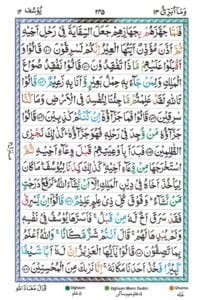 وَمَآ اُبَرِّئُ ١٣ ٢٣٥ يُوْسُف ١٢
فَلَمَّا جَهَّزَهُمْ بِجَهَازِهِمْ جَعَلَ السِّقَايَةَ فِيْ رَحْلِ اَخِيْهِ
ثُمَّ اَذَّنَ مُؤَذِّنٌ اَيَّتُهَا الْعِيْرُ اِنَّكُمْ لَسٰرِقُوْنَ قَالُوْا وَ
اَقْبَلُوْا عَلَيْهِمْ مَّا ذَا تَفْقِدُوْنَ قَالُوْا نَفْقِدُ صُوَاعَ
الْمَلِكِ وَلِمَنْ جَآءَ بِهٖ حِمْلُ بَعِيْرٍ وَّاَنَا بِهٖ زَعِيْمٌ قَالُوْا
تَاللّٰهِ لَقَدْ عَلِمْتُمْ مَّا جِئْنَا لِنُفْسِدَ فِي الْاَرْضِ وَمَا كُنَّا
سٰرِقِيْنَ قَالُوْا فَمَا جَزَآؤُهٗٓ اِنْ كُنْتُمْ كٰذِبِيْنَ قَالُوْا
جَزَآؤُهٗ مَنْ وُّجِدَ فِيْ رَحْلِهٖ فَهُوَ جَزَآؤُهٗ كَذٰلِكَ نَجْزِي
الظّٰلِمِيْنَ فَبَدَاَ بِاَوْعِيَتِهِمْ قَبْلَ وِعَآءِ اَخِيْهِ ثُمَّ
اسْتَخْرَجَهَا مِنْ وِّعَآءِ اَخِيْهِ كَذٰلِكَ كِدْنَا لِيُوْسُفَ مَا كَانَ
لِيَاْخُذَ اَخَاهُ فِيْ دِيْنِ الْمَلِكِ اِلَّآ اَنْ يَّشَآءَ اللّٰهُ نَرْفَعُ
دَرَجٰتٍ مَّنْ نَّشَآءُ وَفَوْقَ كُلِّ ذِيْ عِلْمٍ عَلِيْمٌ قَالُوْٓا اِنْ
يَّسْرِقْ فَقَدْ سَرَقَ اَخٌ لَّهٗ مِنْ قَبْلُ فَاَسَرَّهَا يُوْسُفُ فِيْ
نَفْسِهٖ وَلَمْ يُبْدِهَا لَهُمْ قَالَ اَنْتُمْ شَرٌّ مَّكَانًا وَاللّٰهُ اَعْلَمُ
بِمَا تَصِفُوْنَ قَالُوْا يٰٓاَيُّهَا الْعَزِيْزُ اِنَّ لَهٗٓ اَبًا شَيْخًا
كَبِيْرًا فَخُذْ اَحَدَنَا مَكَانَهٗ اِنَّا نَرٰىكَ مِنَ الْمُحْسِنِيْنَ
قَالَ مَعَاذَ اللّٰهِ